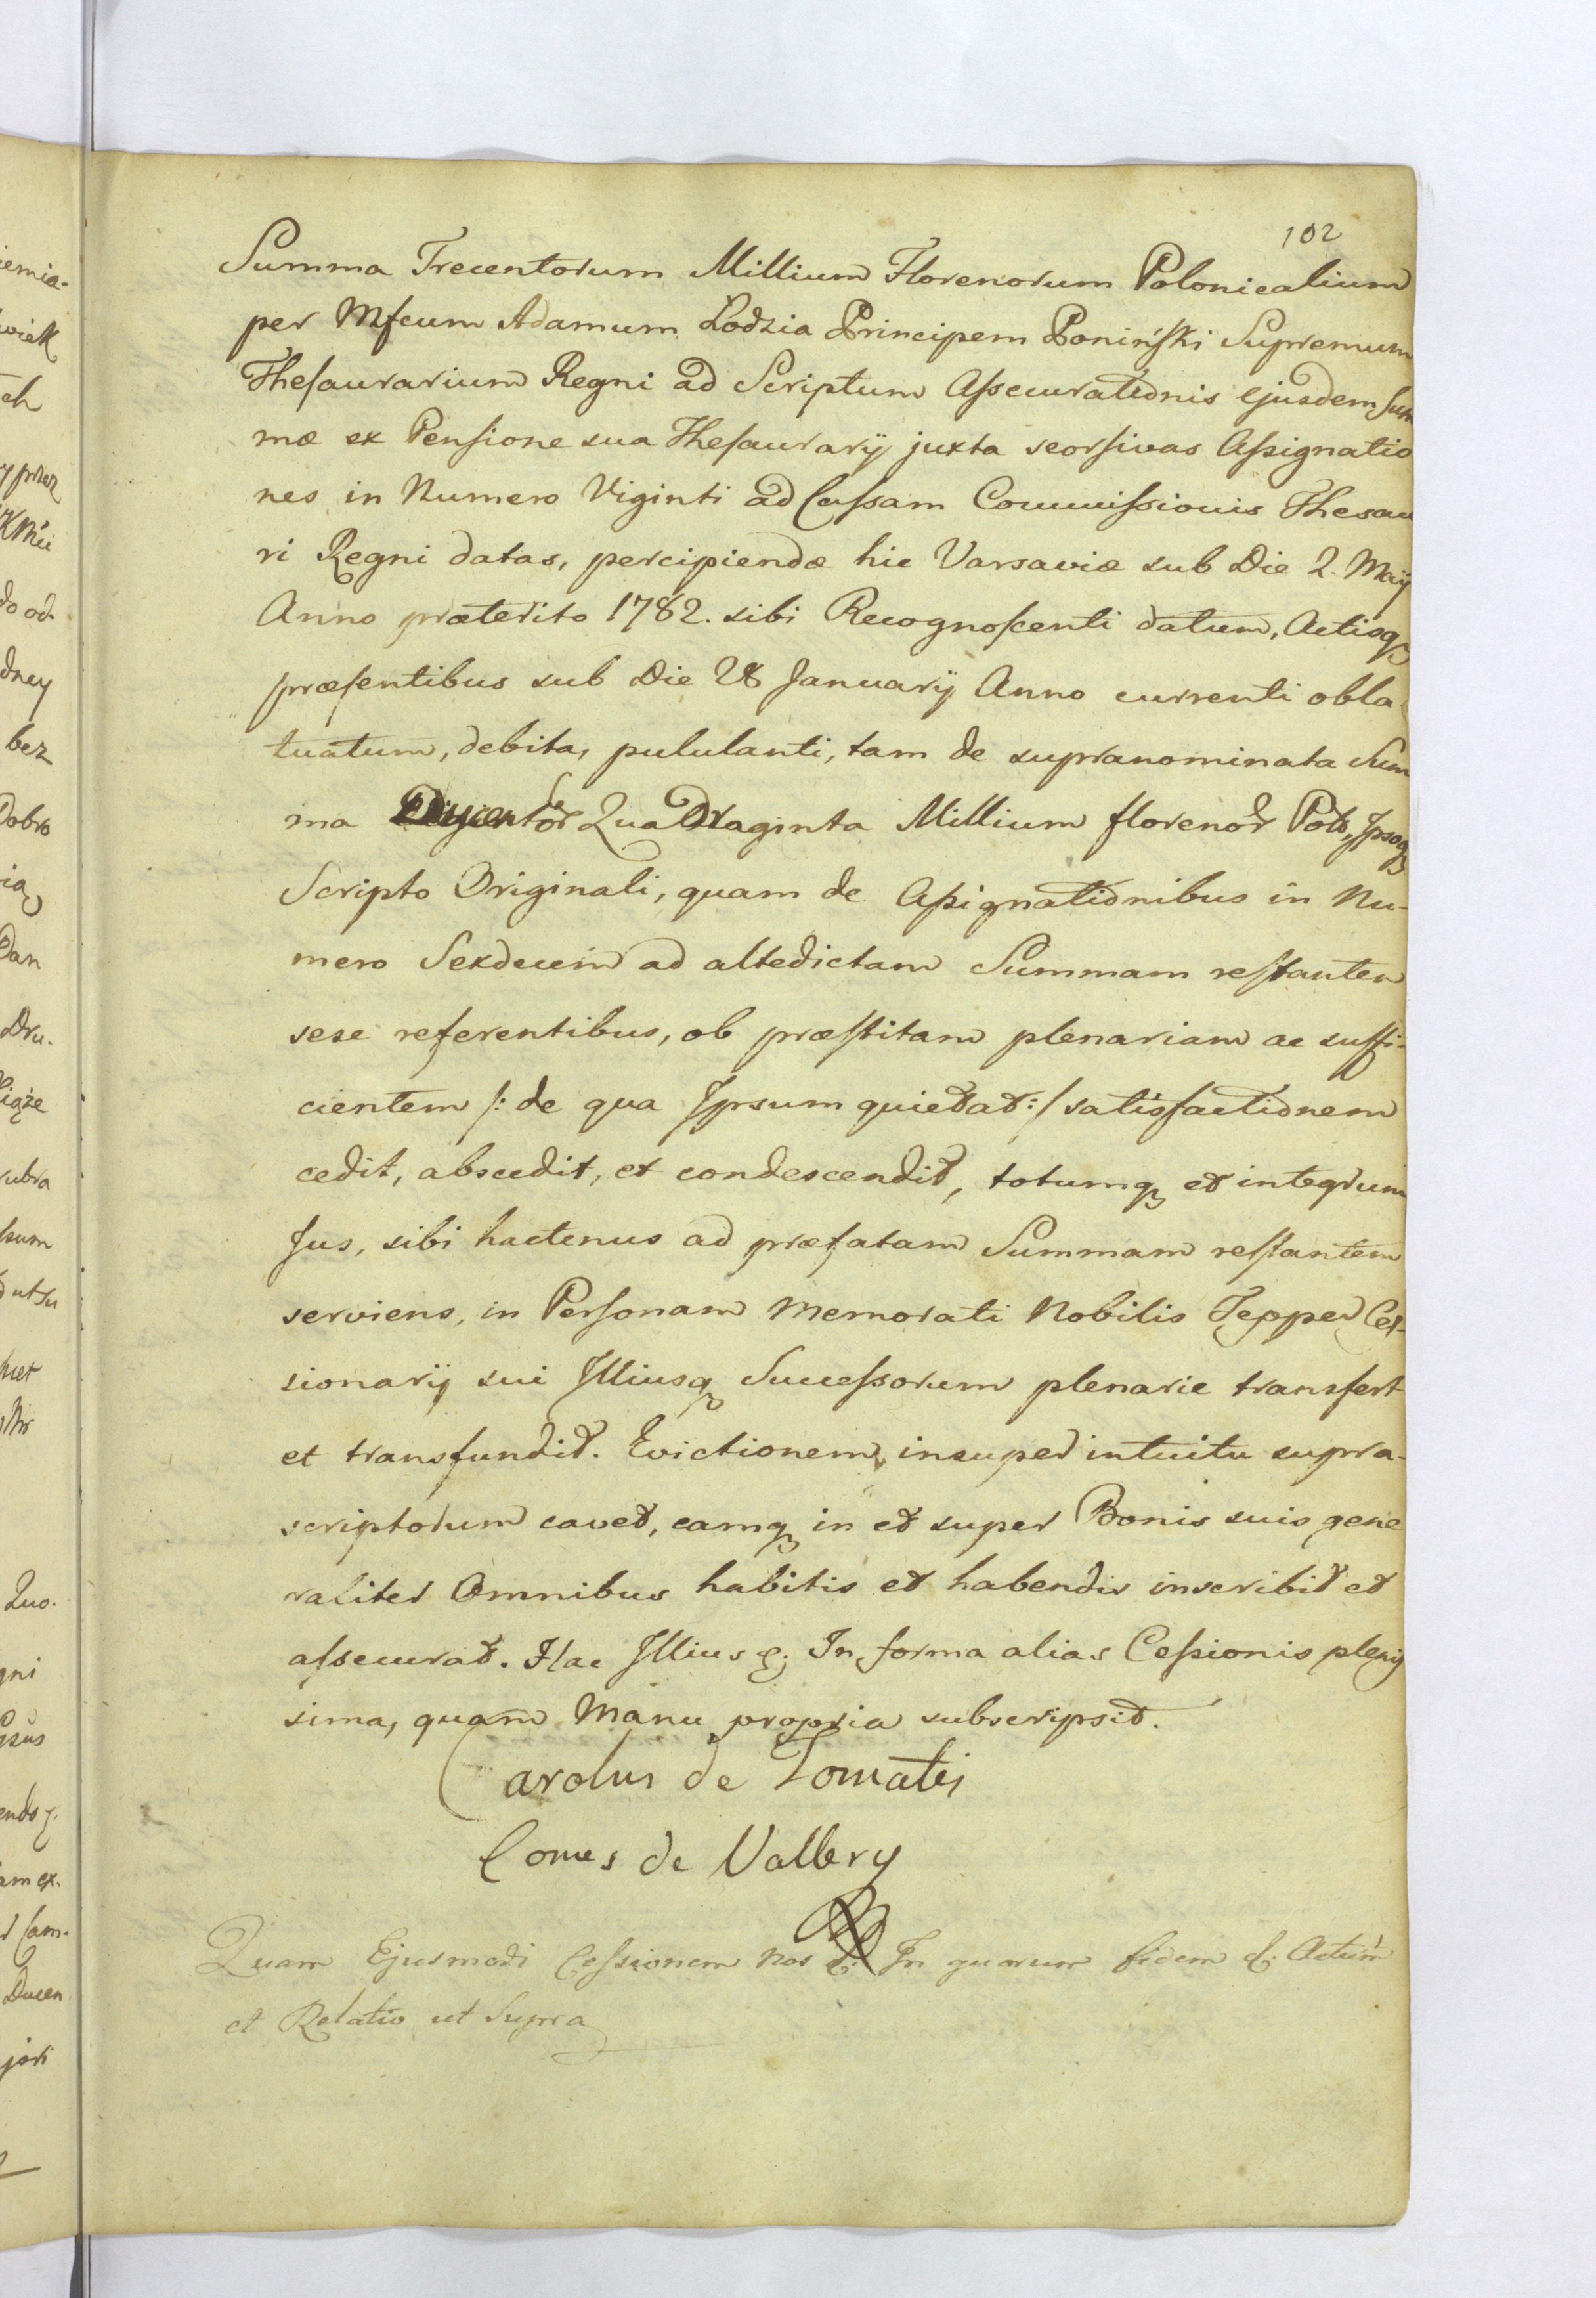 102
Summa Trecentorum Millium Florenorum Polonicalium
per Mfcum Adamum Lodzia Principem Poniński Supremum
Thesaurarium Regni ad Scriptum Assecurationis ejusdem Sum
mæ ex Pensione sua Thesaurarij juxta seorsivas Assignatio
nes in Numero Viginti ad Cassam Commissionis Thesau
ri Regni datas, percipiendæ hic Varsaviæ sub Die 2. Maij
Anno præterito 1782. sibi Recognoscenti datum, Actisq
præsentibus sub Die 28 Januarij Anno currenti obla
tuatum, debita, pululanti, tam de supranominata Sum
ma Ducentor Quadraginta Millium florenor Pols, Ipsoq
Scripto Originali, quam de Assignationibus in Nu-
mero Sexdecim ad altedictam Summam restantem
sese referentibus, ob præstitam plenariam ac suffi-
cientem /: de qua Ipsum quietat :/ satisfactionem
cedit, abscedit, et condescendit, totumq et integrum
Jus, sibi hactenus ad præfatam Summam restantem
serviens, in Personam Memorati Nobilis Tepper Ces-
sionarij sui Illiusq Successorum plenarie transfert
et transfundit. Evictionem insuper intuitu supra-
scriptorum cavet, eamq in et super Bonis suis gene
raliter Omnibus habitis et habendis inscribit et
assecurat. Hac Illius &; In forma alias Cessionis plenis
sima, quam Manu propria subscripsit.
Carolus de Tomatis
Comes de Vallery
Quam Ejusmodi Cessionem nos &. In quorum fidem &. Actum
et Relatio ut Supra
iemia-
wiek
ch
przez
do od-
dney
bez
Dobro
Pan
Dru-
iąże
rubra
sum
Quo-
gni
am ex-
Ducen